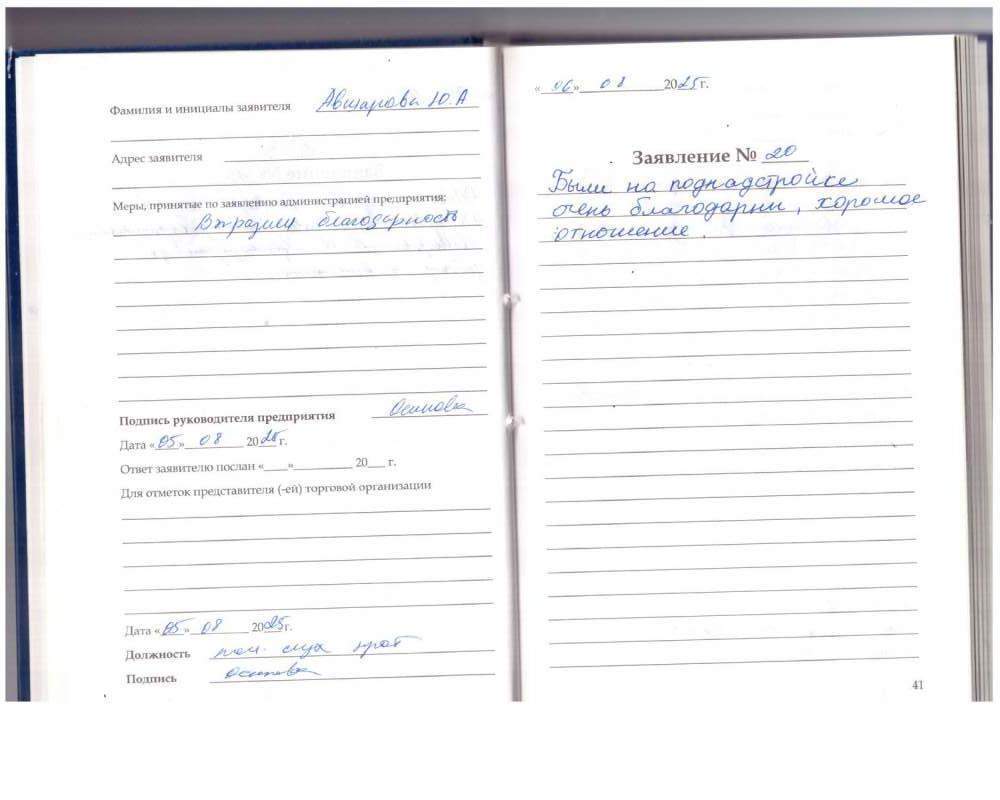 Фамилия и инициалы заявителя Авшарова Ю.А
Адрес заявителя
Меры, принятые по заявлению администрацией предприятия:
Выразили благодарность
Подпись руководителя предприятия Осипова
Дата «05» 08 2025 г.
Ответ заявителю послан «____»__________ 20___ г.
Для отметок представителя (-ей) торговой организации
Дата «05» 08 2025 г.
Должность
Подпись Осипова
«06» 08 2025 г.
Заявление № 20
Были на поднадстройке
очень благодарны, хорошое
отношение.
41